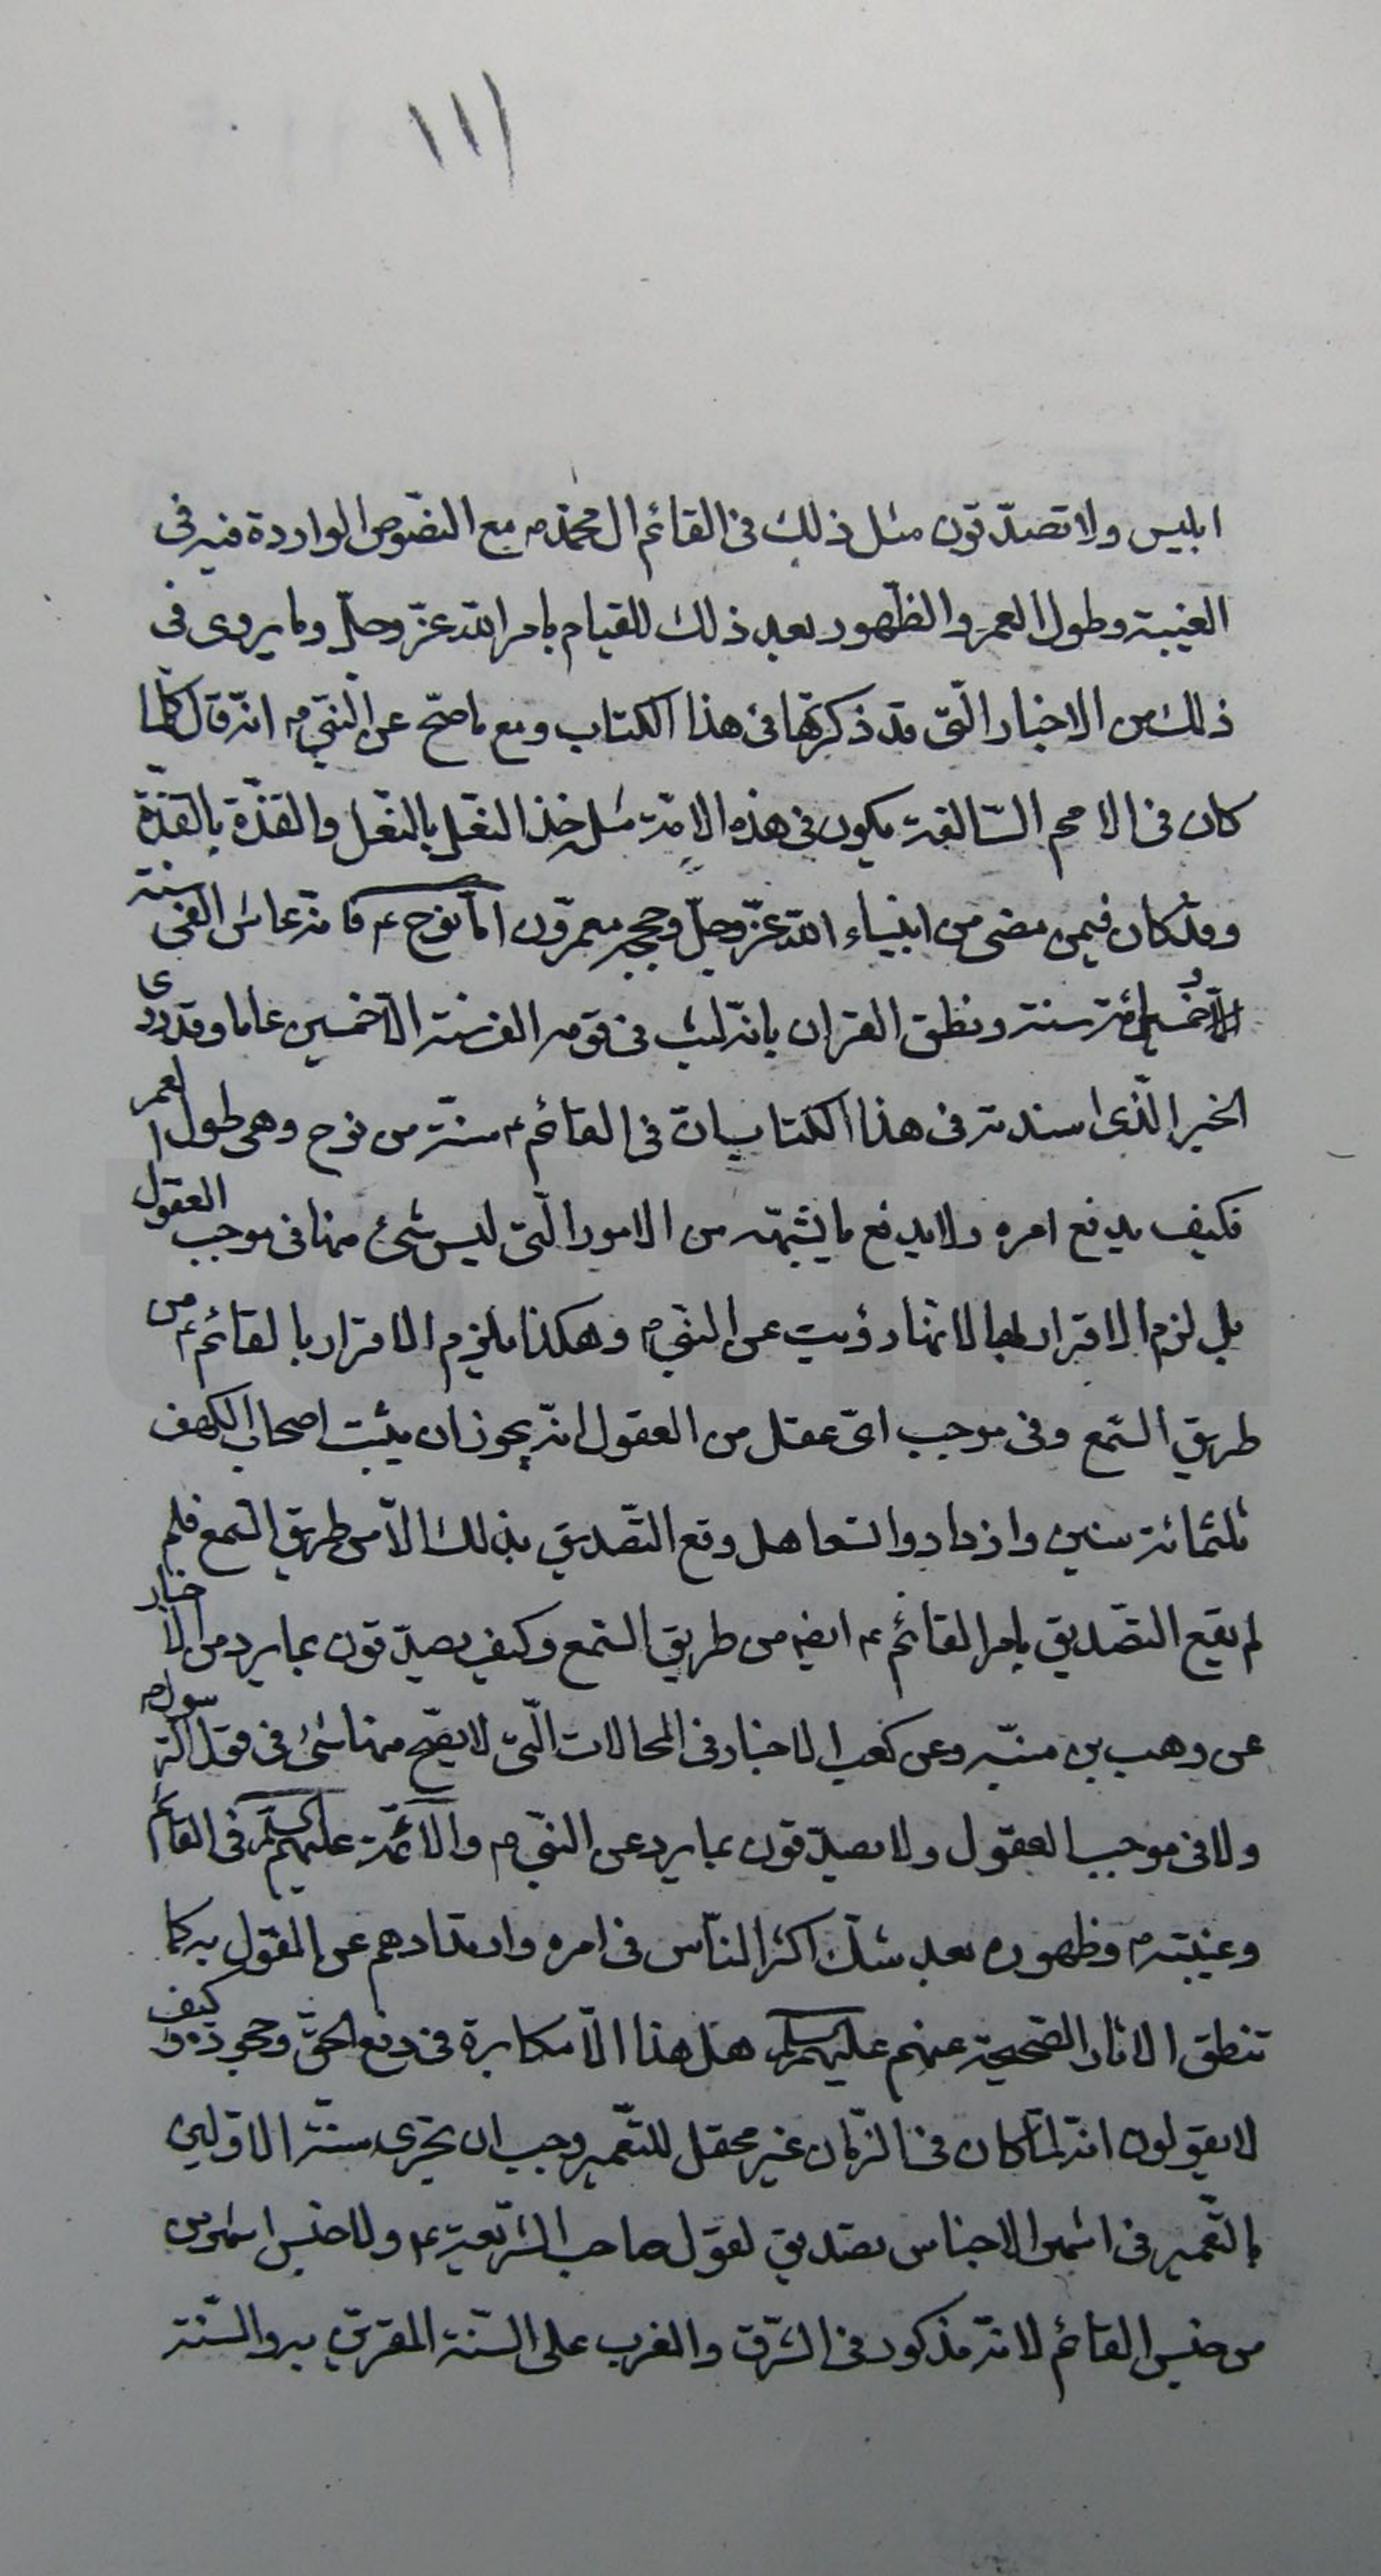 ١١١
ابليس ولا تصدّقون مثل ذلك فى القائم ال محمّد ص مع النصّوص الواردة فيه فى
الغيبة وطول العمر والظّهور بعد ذلك للقيام بامر الله عزّ وجلّ وما يروى فى
ذلك من الاخبار الّتى قد ذكرتها فى هذا الكتاب ومع ما صحّ عن النّبىّ ص انّه قال كلّما
كان فى الامم السّالفة يكون فى هذه الامّة مثله حذ النعّل بالنعّل والقذّة بالقذّة
وقد كان فيمن مضى من انبياء الله عزّ وجلّ وحججه معمرّون امّا نوح ع فانّه عاش الفى سنة
الّا خمسمائة سنة ونطق القران بانّه لبث فى قومه الف سنة الّا خمسين عاما وقد روى
الخبر الّذى اسندته فى هذا الكتاب انّ فى القائم ع سنّة من نوح وهى طول العمر
فكيف يدفع امره ولا يدفع ما يشبهّه من الامور الّتى ليس شئ منها فى موجب العقول
بل لزم الاقرار لها لانها رؤيت عن النبّى ص وهكذا يلزم الاقرار بالقائم ع من
طريق السّمع وفى موجب اىّ عقل من العقول انّه يجوز ان يلبث اصحاب الكهف
ثلثمائة سنين وازدادوا تسعا هل وقع التّصديق بذلك الّا من طريق السّمع فلم
لم يقع التصّديق بامر القائم ع ايضا من طريق السّمع وكيف يصدّقون بما يرد من الاخبار
عن وهب بن منبّه وعن كعب الاحبار فى المحالات الّتى لا يصّح منها شئ فى قول الرّسول ص
ولا فى موجب العقول ولا يصدّقون بما يرد عن النبّى ص والائمّة عليهم السلم فى القائم
وغيبته ع وظهوره بعد شكّ اكثر النّاس فى امره وارتدادهم عن القول به كما
تنطق الاثار الصّحيحة عنهم عليهم السلم هل هذا الّا مكابرة فى دفع الحقّ وجحوده وكيف
لا يقولون انّه لمّا كان فى الزّمان غير محتمل للتّعمير وجب ان تجرى سنّة الاوّلين
بالتّعمير فى اشهر الاجناس تصديق لقول صاحب الشّريعة ع ولا جنس اشهر من
من جنس القائم لانّه مذكور فى الشّرق والغرب على السّنة المقرين به والسّنة